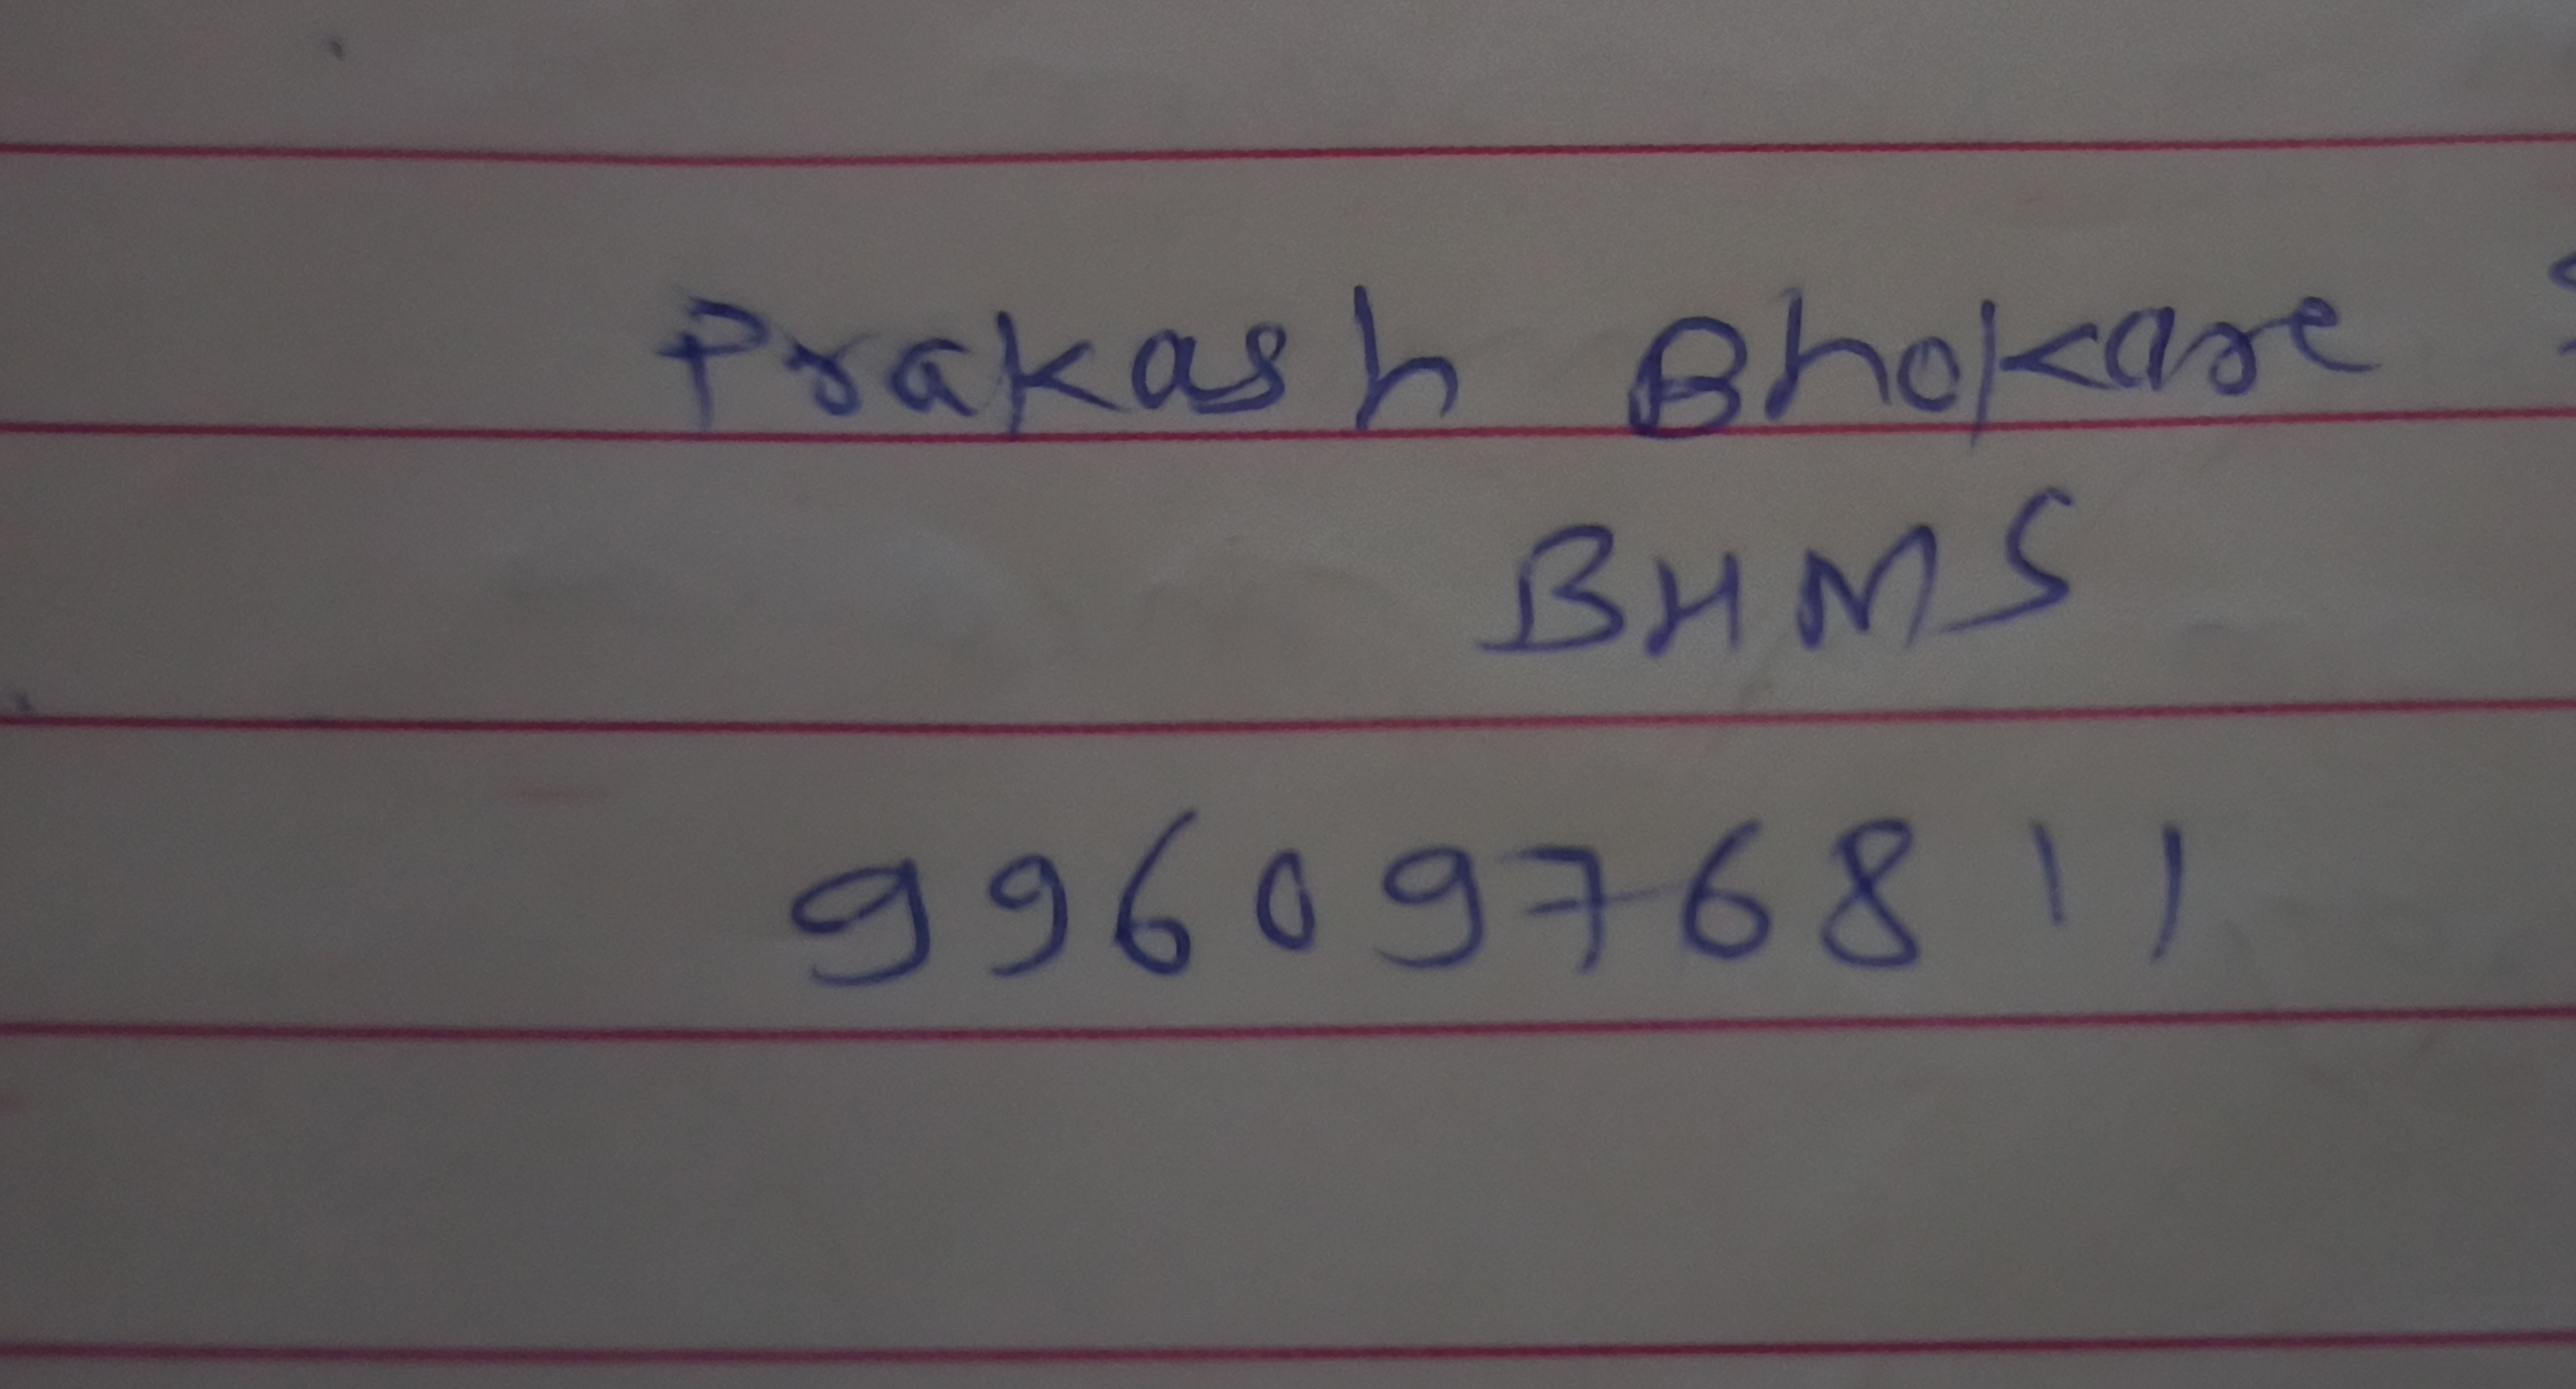 Prakash Bhokare
BHMS
9960976811